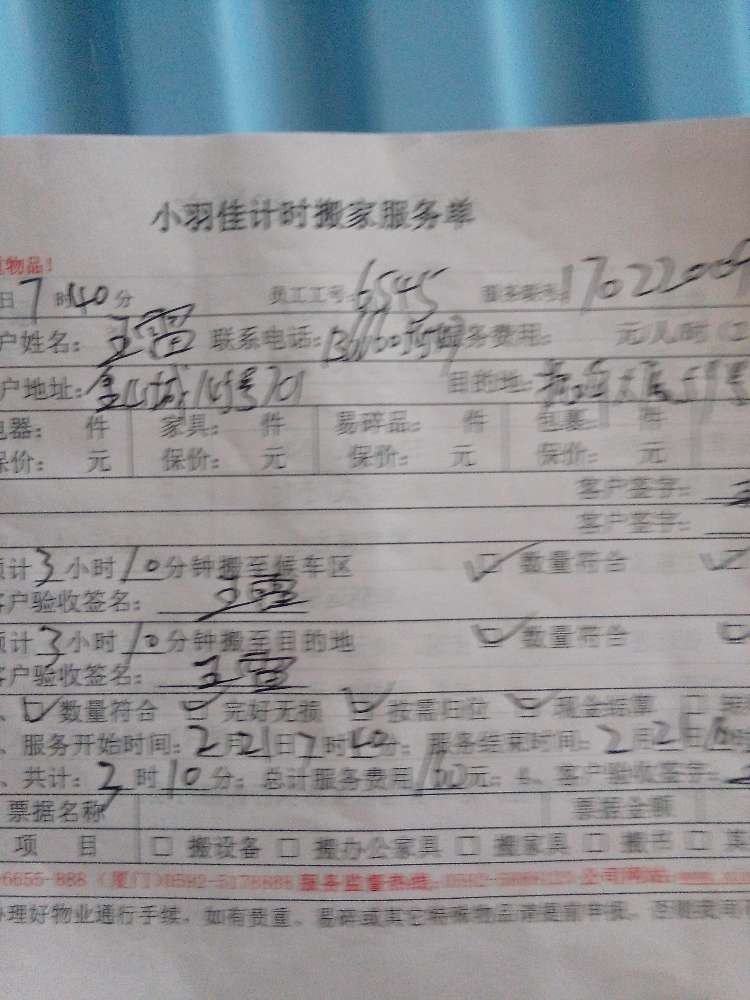 小羽佳计时搬家服务单
物品！
日7时40分 员工工号：6545 服务联号：17022009
户姓名：王雷 联系电话： 务费用： 元/人/时
户地址： 701 目的地：
电器： 件 家具： 件 易碎品： 件 包裹： 件
保价： 元 保价： 元 保价： 元 保价： 元
客户签字：
客户签字：
预计3小时10分钟搬至候车区 数量符合
客户验收签名：王雷
预计3小时10分钟搬至目的地 数量符合
客户验收签名：王雷
数量符合 完好无损 按需归位 现金结算
、服务开始时间：2月21日7时40分；服务结束时间：2月21日
、共计：3时10分；总计服务费用160元；4、客户验收签字：
票据名称 票据金额
项 目 □ 搬设备 □ 搬办公家具 □ 搬家具 □ 搬书 □ 其
6655-888（厦门）0592-5178888 服务监督热线： 公司网站：
办理好物业通行手续，如有贵重、易碎或其它特殊物品请提前申报，否则我司